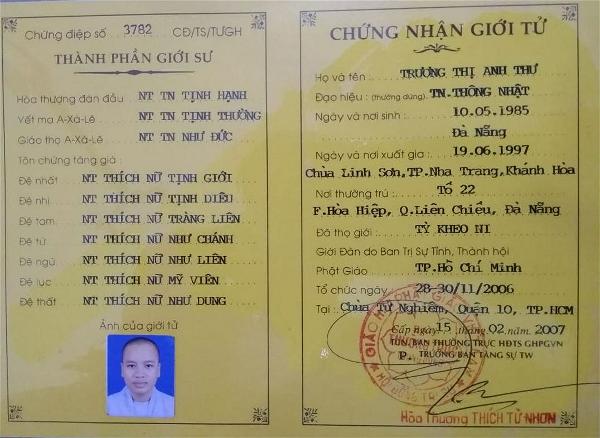 Chứng điệp số 3782 CĐ/TS/TƯGH
THÀNH PHẦN GIỚI SƯ
Hòa thượng đàn đầu NT TN TỊNH HẠNH
Yết ma A-Xà-Lê NT TN TỊNH THƯỜNG
Giáo thọ A-Xà-Lê NT TN NHƯ ĐỨC
Tôn chứng tăng già :
Đệ nhất NT THÍCH NỮ TỊNH GIỚI
Đệ nhị NT THÍCH NỮ TỊNH DIỆU
Đệ tam NT THÍCH NỮ TRÀNG LIÊN
Đệ tứ NT THÍCH NỮ NHƯ CHÁNH
Đệ ngũ NT THÍCH NỮ NHƯ LIÊN
Đệ lục NT THÍCH NỮ MỸ VIÊN
Đệ thất NT THÍCH NỮ NHƯ DUNG
Ảnh của giới tử
CHỨNG NHẬN GIỚI TỬ
Họ và tên : TRƯƠNG THỊ ANH THƯ
Đạo hiệu : (thường dùng) TN.THÔNG NHẬT
Ngày và nơi sinh : 10.05.1985
Đà Nẵng
Ngày và nơi xuất gia : 19.06.1997
Chùa Linh Sơn,TP.Nha Trang,Khánh Hòa
Nơi thường trú : Tổ 22
F.Hòa Hiệp, Q.Liên Chiểu, Đà Nẵng
Đã thọ giới : TỲ KHEO NI
Giới Đàn do Ban Trị Sự Tỉnh, Thành hội
Phật Giáo : TP.Hồ Chí Minh
Tổ chức ngày : 28-30/11/2006
Tại : Chùa Từ Nghiêm, Quận 10, TP.HCM
Cấp ngày 15 tháng 02 năm 2007
TUN, BAN THƯỜNG TRỰC HĐTS GHPGVN
P. TRƯỞNG BAN TĂNG SỰ TW
Hòa Thượng THÍCH TỪ NHƠN